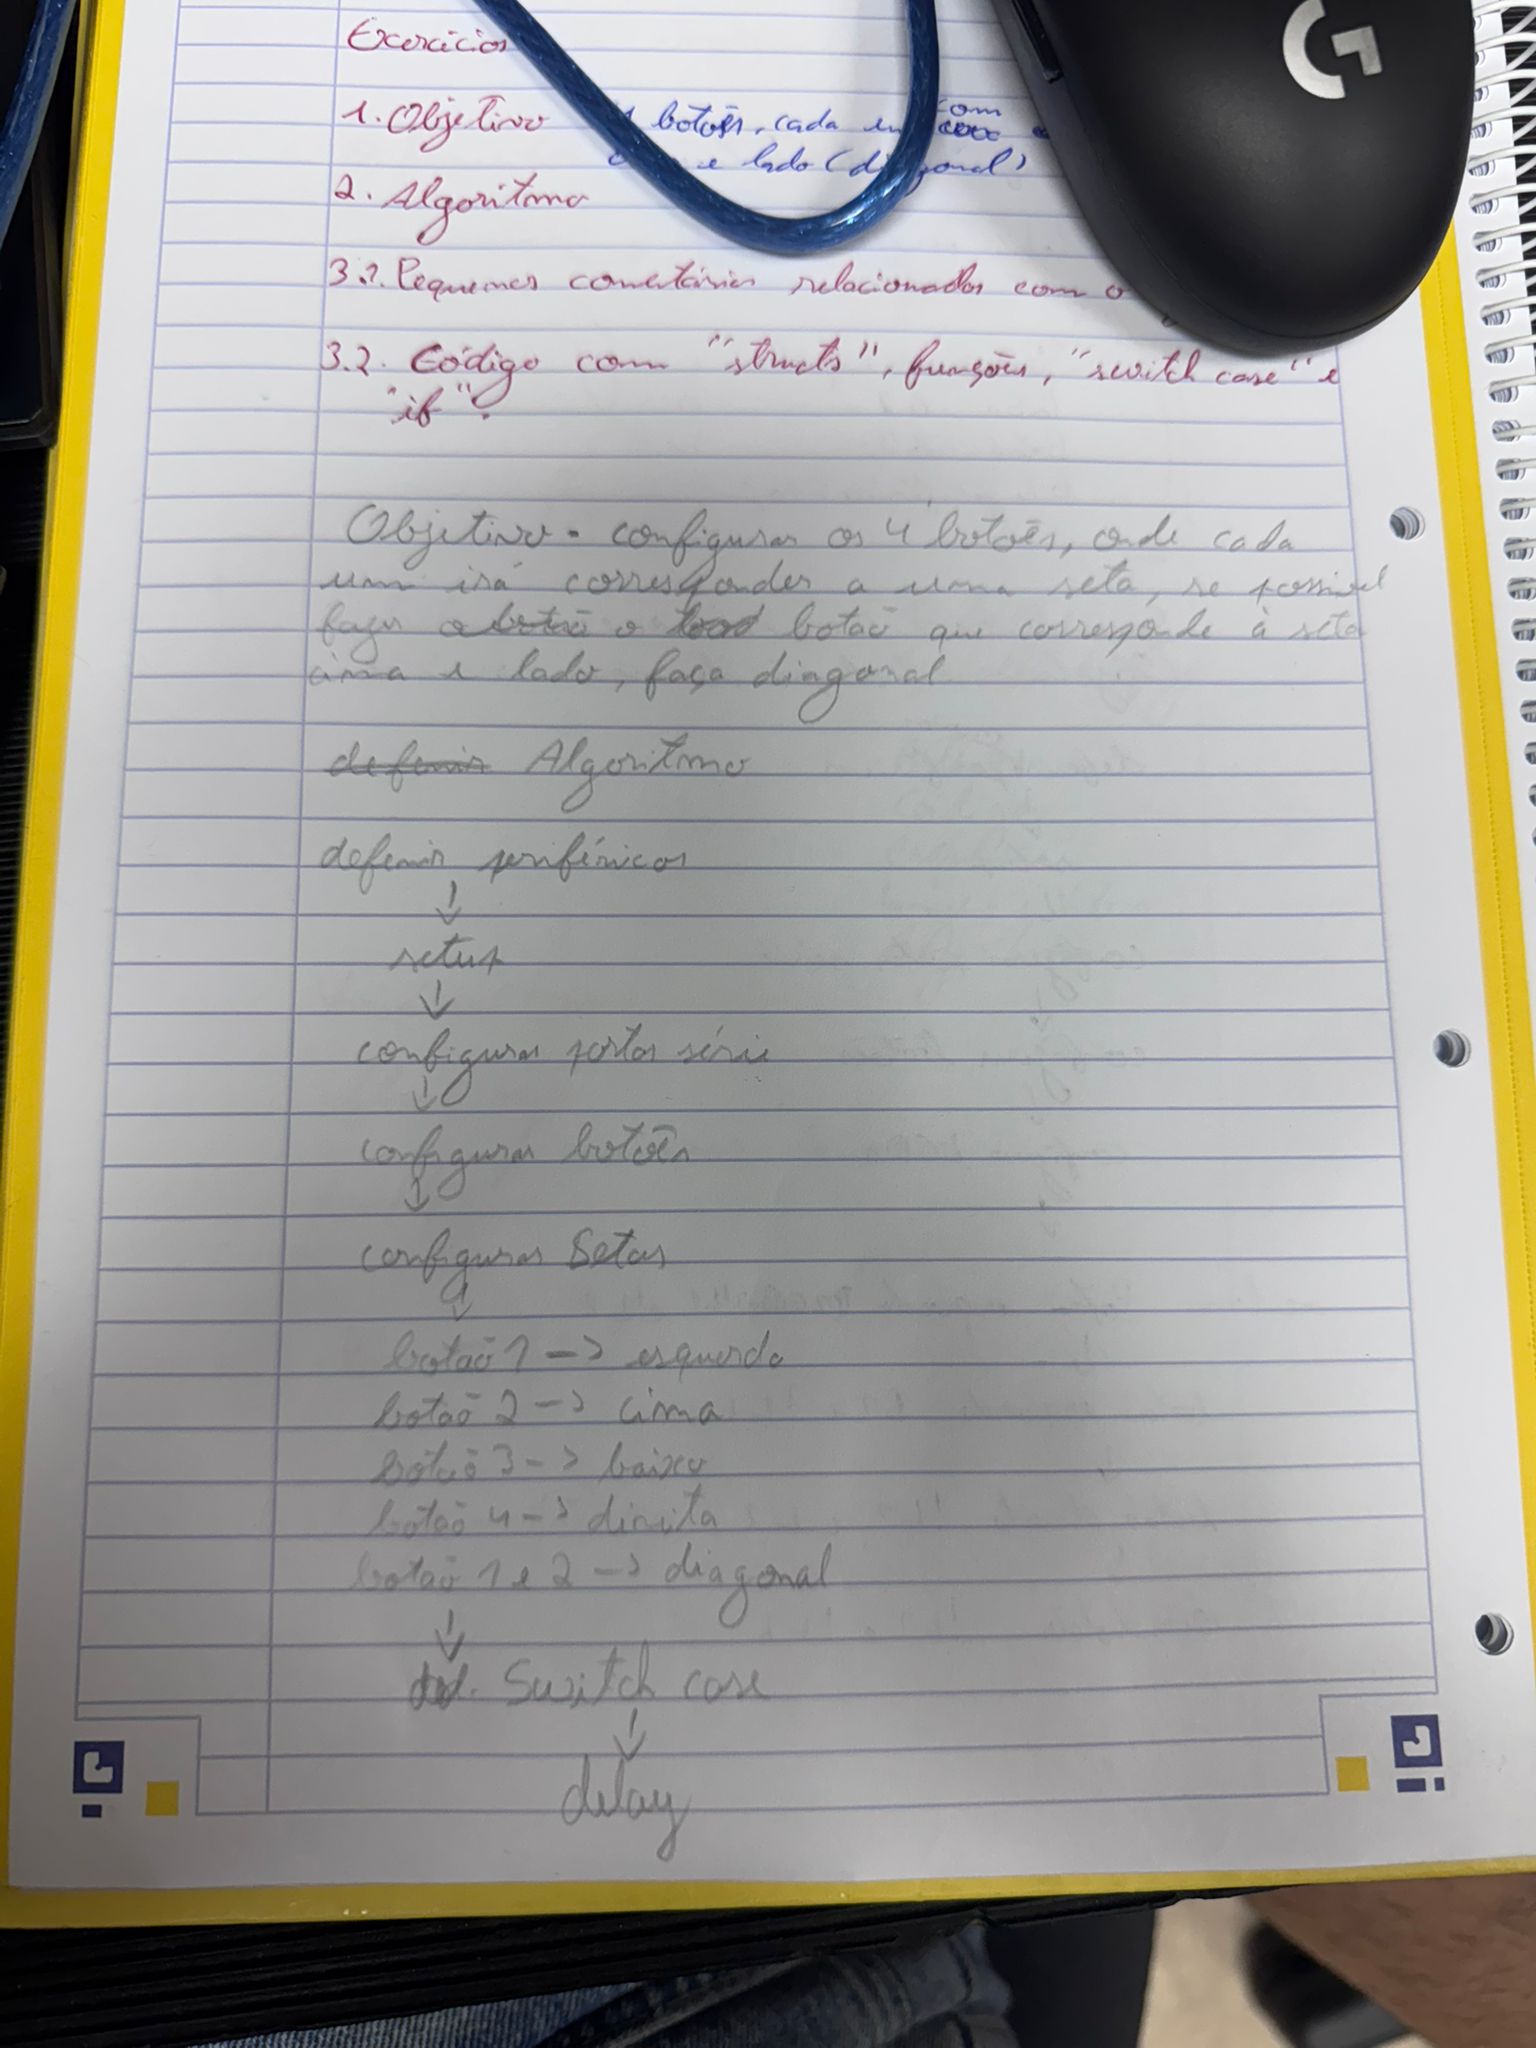 Exercícios
1. Objetivo botões, cada com
e lado (diagonal)
2. Algoritmo
3.1. Pequenos comentários relacionados com o
3.2. Código com "structs", funções, "switch case" e
"if".
Objetivo - configurar os 4 botões, onde cada
um irá corresponder a uma seta, se possível
fazer o botão que corresponde à seta
cima e lado, faça diagonal
definir Algoritmo
definir periféricos
↓
setup
↓
configurar portas série
↓
configurar botões
↓
configurar Setas
↓
botão 1 -> esquerda
botão 2 -> cima
botão 3 -> baixo
botão 4 -> direita
botão 1 e 2 -> diagonal
↓
Switch case
↓
delay